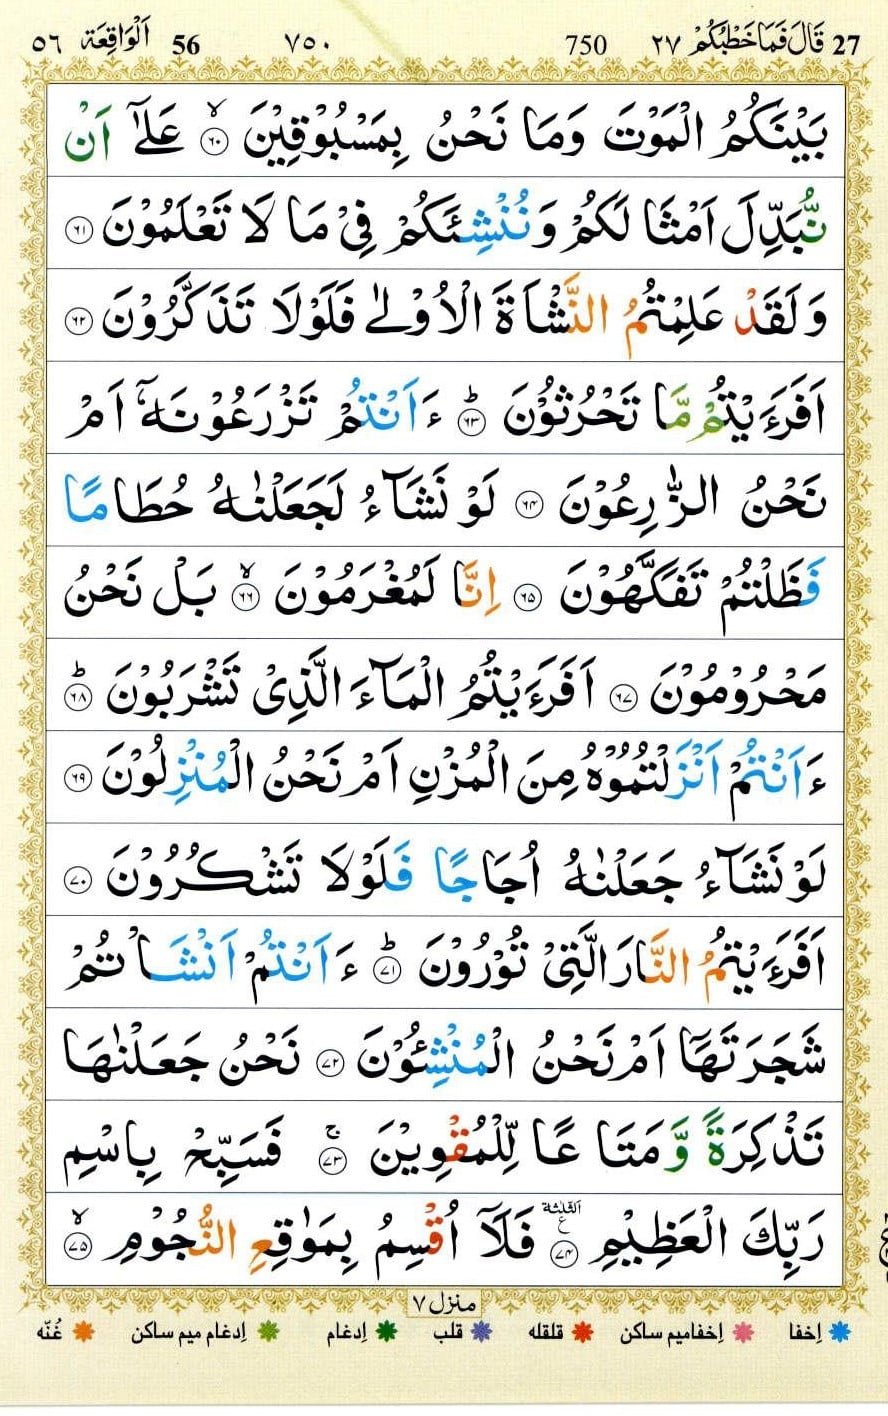 27 قَالَ فَمَا خَطْبُكُمْ ٢٧ 750 ٧٥٠ 56 اَلْوَاقِعَة ٥٦
بَيْنَكُمُ الْمَوْتَ وَمَا نَحْنُ بِمَسْبُوْقِيْنَ ۙ‏﴿٦٠﴾ عَلٰٓى اَنْ
نُّبَدِّلَ اَمْثَا لَكُمْ وَنُنْشِئَكُمْ فِىْ مَا لَا تَعْلَمُوْنَ ﴿٦١﴾
وَلَقَدْ عَلِمْتُمُ النَّشْاَةَ الْاُوْلٰى فَلَوْلَا تَذَكَّرُوْنَ ﴿٦٢﴾
اَفَرَءَيْتُمْ مَّا تَحْرُثُوْنَ ؕ‏﴿٦٣﴾ ءَاَنْتُمْ تَزْرَعُوْنَهٗۤ اَمْ
نَحْنُ الزّٰرِعُوْنَ ﴿٦٤﴾ لَوْ نَشَآءُ لَجَعَلْنٰهُ حُطَامًا
فَظَلْتُمْ تَفَكَّهُوْنَ ﴿٦٥﴾ اِنَّا لَمُغْرَمُوْنَ ۙ‏﴿٦٦﴾ بَلْ نَحْنُ
مَحْرُوْمُوْنَ ﴿٦٧﴾ اَفَرَءَيْتُمُ الْمَآءَ الَّذِىْ تَشْرَبُوْنَ ؕ‏﴿٦٨﴾
ءَاَنْتُمْ اَنْزَلْتُمُوْهُ مِنَ الْمُزْنِ اَمْ نَحْنُ الْمُنْزِلُوْنَ ﴿٦٩﴾
لَوْ نَشَآءُ جَعَلْنٰهُ اُجَاجًا فَلَوْلَا تَشْكُرُوْنَ ﴿٧٠﴾
اَفَرَءَيْتُمُ النَّارَ الَّتِىْ تُوْرُوْنَ ؕ‏﴿٧١﴾ ءَاَنْتُمْ اَنْشَاْتُمْ
شَجَرَتَهَاۤ اَمْ نَحْنُ الْمُنْشِئُوْنَ ﴿٧٢﴾ نَحْنُ جَعَلْنٰهَا
تَذْكِرَةً وَّمَتَا عًا لِّلْمُقْوِيْنَ ۚ‏﴿٧٣﴾ فَسَبِّحْ بِاسْمِ
رَبِّكَ الْعَظِيْمِ ﴿٧٤﴾ ع اَلثَّلٰثَة فَلَاۤ اُقْسِمُ بِمَوٰقِعِ النُّجُوْمِ ۙ‏﴿٧٥﴾
منزل ٧
اِخفا اِخفامیم ساکن قلقله قلب اِدغام اِدغام میم ساکن غُنّه